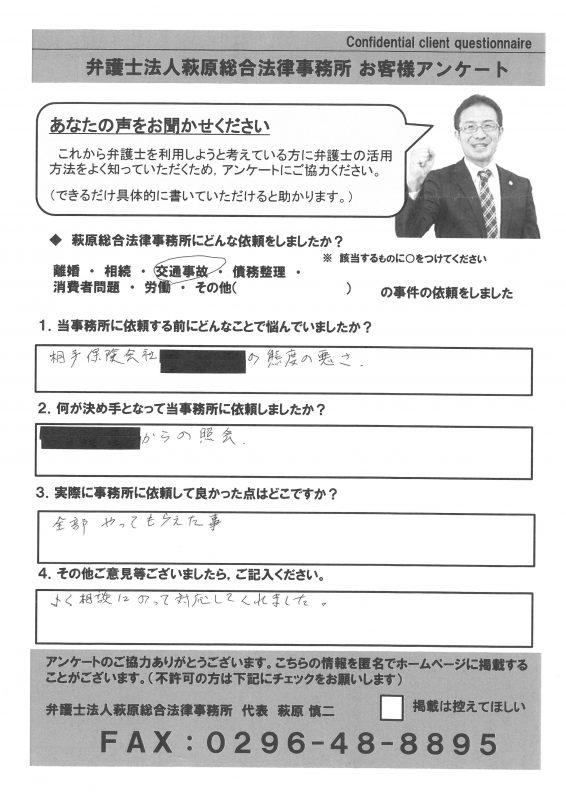 Confidential client questionnaire
弁護士法人萩原総合法律事務所 お客様アンケート
あなたの声をお聞かせください
これから弁護士を利用しようと考えている方に弁護士の活用
方法をよく知っていただくため，アンケートにご協力ください。
（できるだけ具体的に書いていただけると助かります。）
◆ 萩原総合法律事務所にどんな依頼をしましたか？
※ 該当するものに○をつけてください
離婚 ・ 相続 ・ 交通事故 ・ 債務整理 ・
消費者問題 ・ 労働 ・ その他( ) の事件の依頼をしました
1．当事務所に依頼する前にどんなことで悩んでいましたか？
相手保険会社 の態度の悪さ．
2．何が決め手となって当事務所に依頼しましたか？
からの照会．
3．実際に事務所に依頼して良かった点はどこですか？
全部 やってもらえた事
4．その他ご意見等ございましたら，ご記入ください。
よく相談にのって対応してくれました。
アンケートのご協力ありがとうございます。こちらの情報を匿名でホームページに掲載する
ことがございます。（不許可の方は下記にチェックをお願いします）
弁護士法人萩原総合法律事務所 代表 萩原 慎二
掲載は控えてほしい
FAX：0296-48-8895